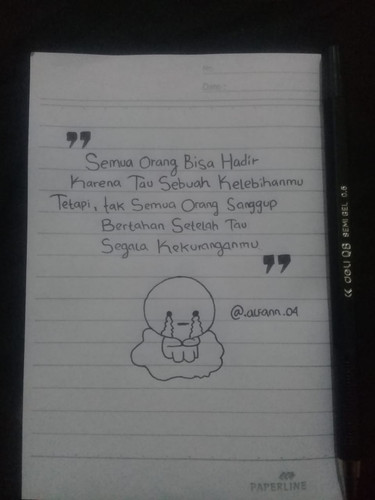 No:
Date:
" Semua Orang Bisa Hadir
Karena Tau Sebuah Kelebihanmu
Tetapi, tak Semua Orang Sanggup
Bertahan Setelah Tau
Segala Kekuranganmu "
PAPERLINE
DELI Q8 SEMI GEL 0.8